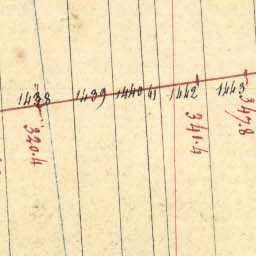 1438 1439 1440 41 1442 1443
320.4
341.4
347.8